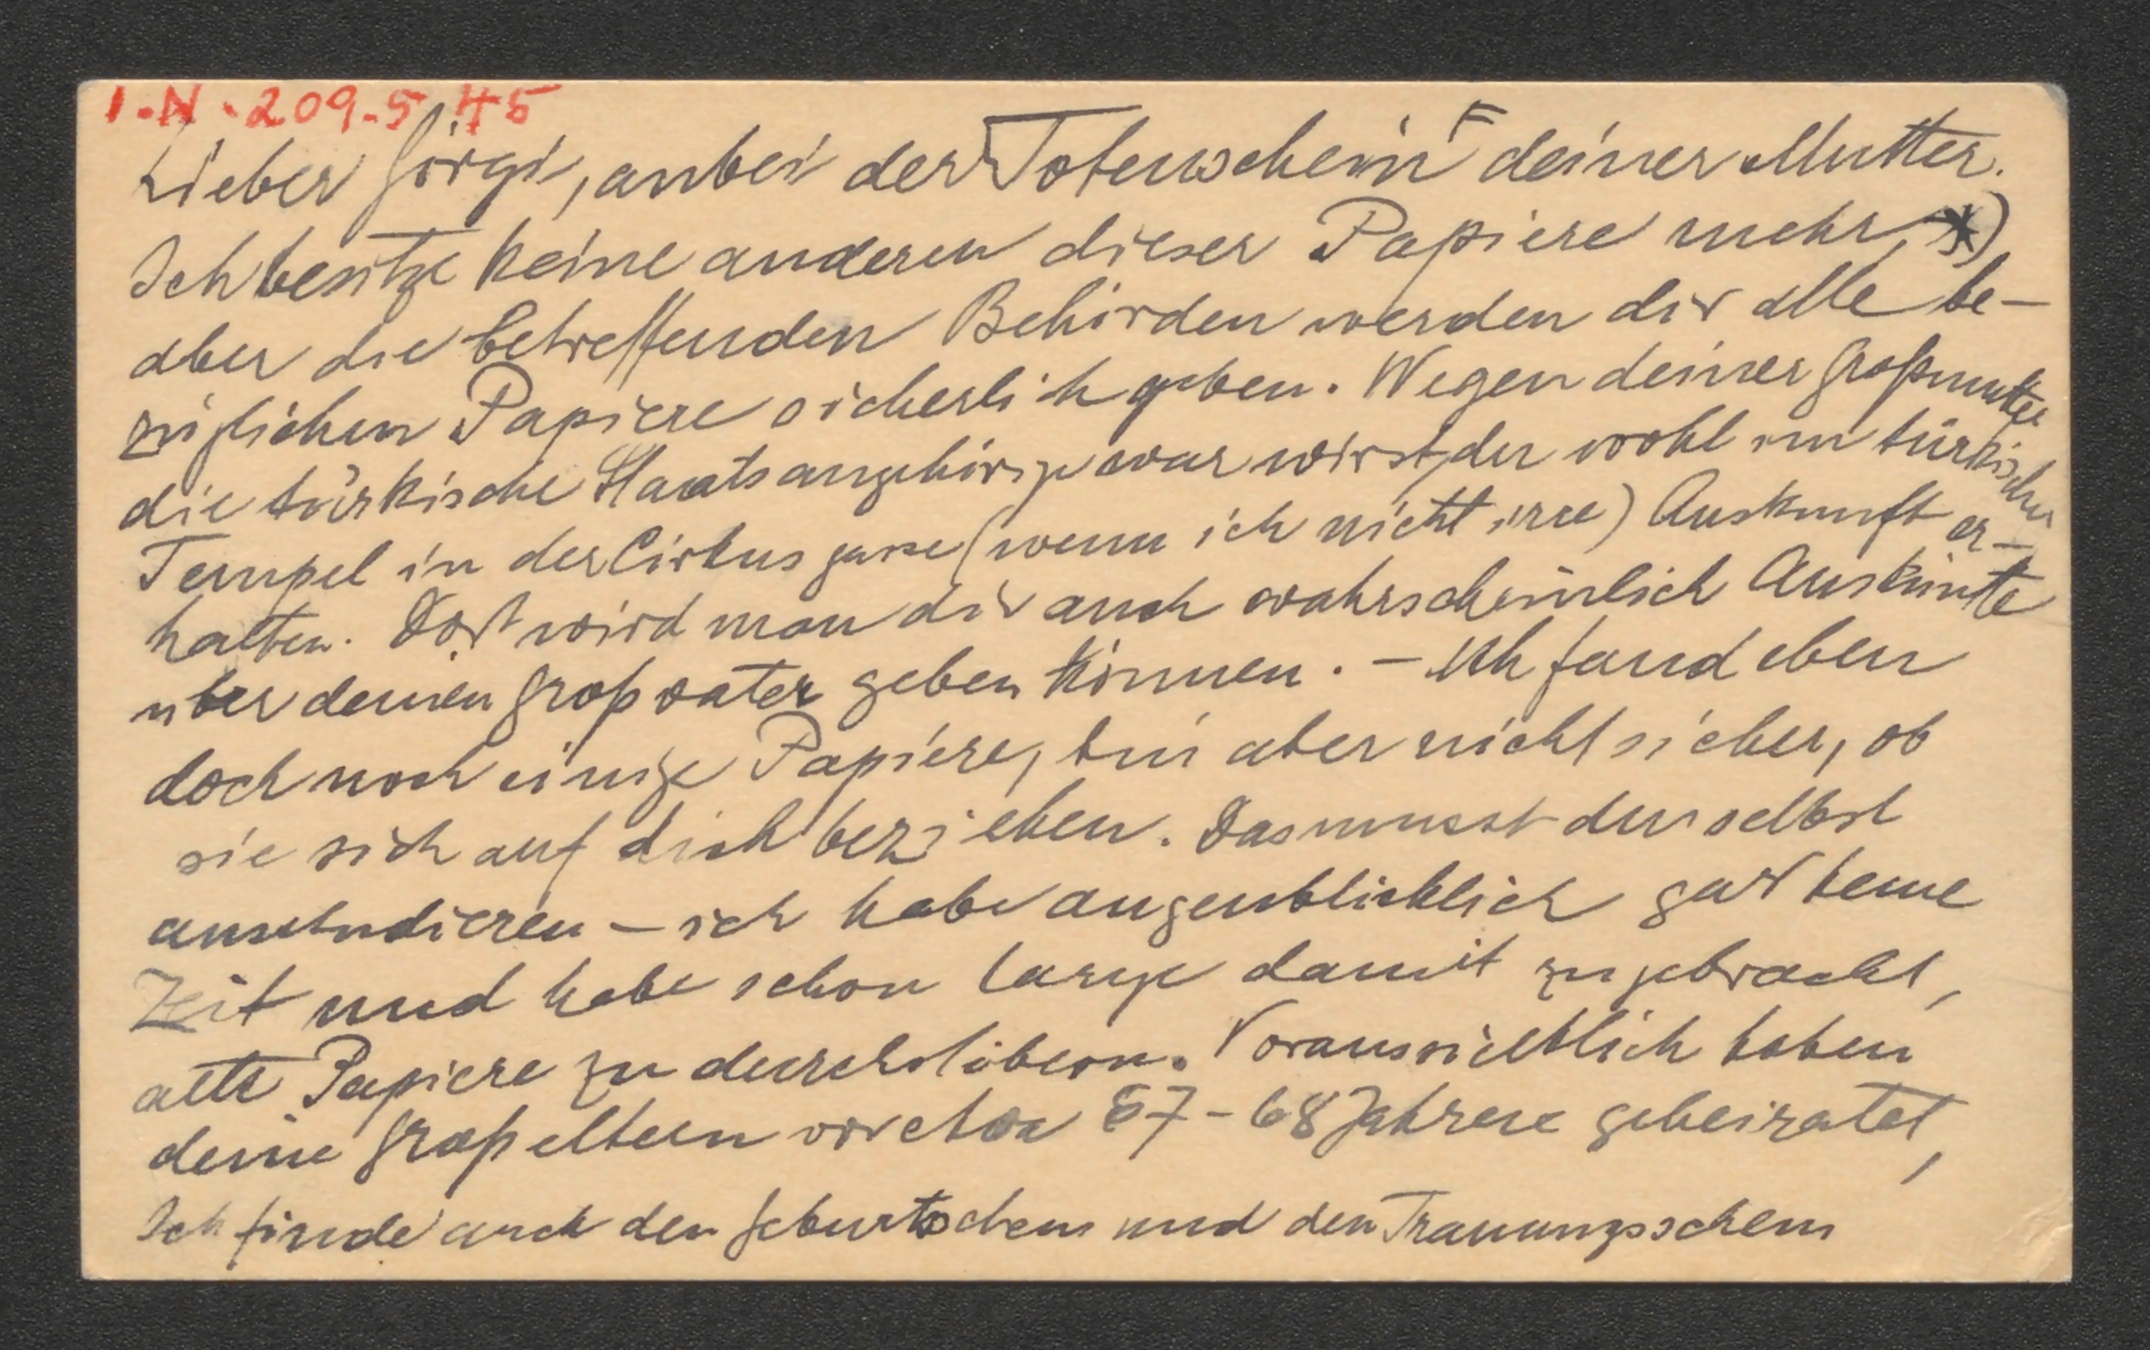 I.N. 209.545
Lieber Görgi, anbei der Totenschein deiner Mutter.
Ich besitze keine anderen dieser Papiere mehr, *)
aber die betreffenden Behörden werden dir alle be-
züglichen Papiere sicherlich geben. Wegen deiner Großmutter
die türkische Staatsangehörige war wirst du wohl im türkischen
Tempel in der Cirkusgasse (wenn ich nicht irre) Auskunft er-
halten. Dort wird man dir auch wahrscheinlich Auskünfte
über deinen Großvater geben können. - Ich fand eben
doch noch einige Papiere, bin aber nicht sicher, ob
sie sich auf dich beziehen. Das musst du selbst
ausstudieren - ich habe augenblicklich gar keine
Zeit und habe schon lange damit zugebracht,
alte Papiere zu durchstöbern. Voraussichtlich haben
deine Großeltern vor etwa 67-68 Jahren geheiratet,
Ich finde auch den Geburtschein und den Trauungsschein